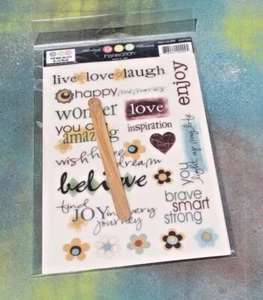 inspiration
live love laugh
happy memories
enjoy
wonder
love
you are
amazing
inspiration
wish
dream
you
believe
brave
find
smart
JOY in every
strong
journey